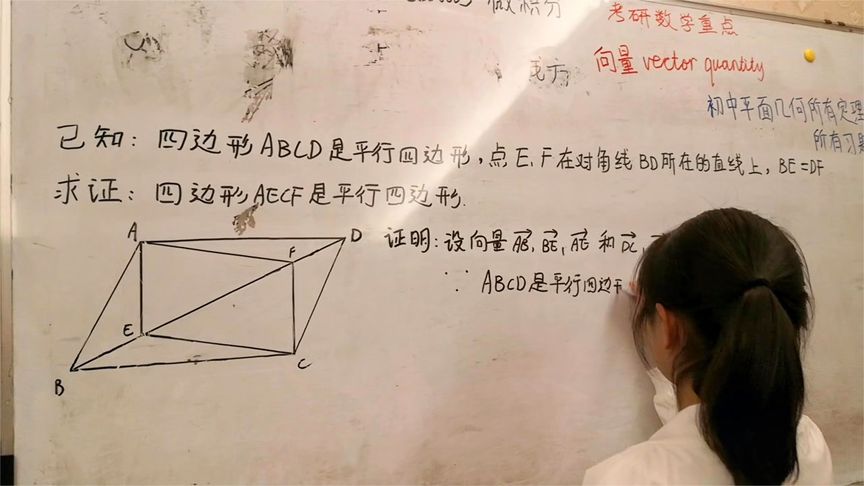 微积分
考研数学重点
向量 vector quantity
初中平面几何所有定理
所有习题
已知：四边形ABCD是平行四边形，点E、F在对角线BD所在的直线上，BE=DF
求证：四边形AECF是平行四边形.
证明：设向量 AB, BE, AE 和 DC,
∵ ABCD是平行四边形
A
D
F
E
B
C